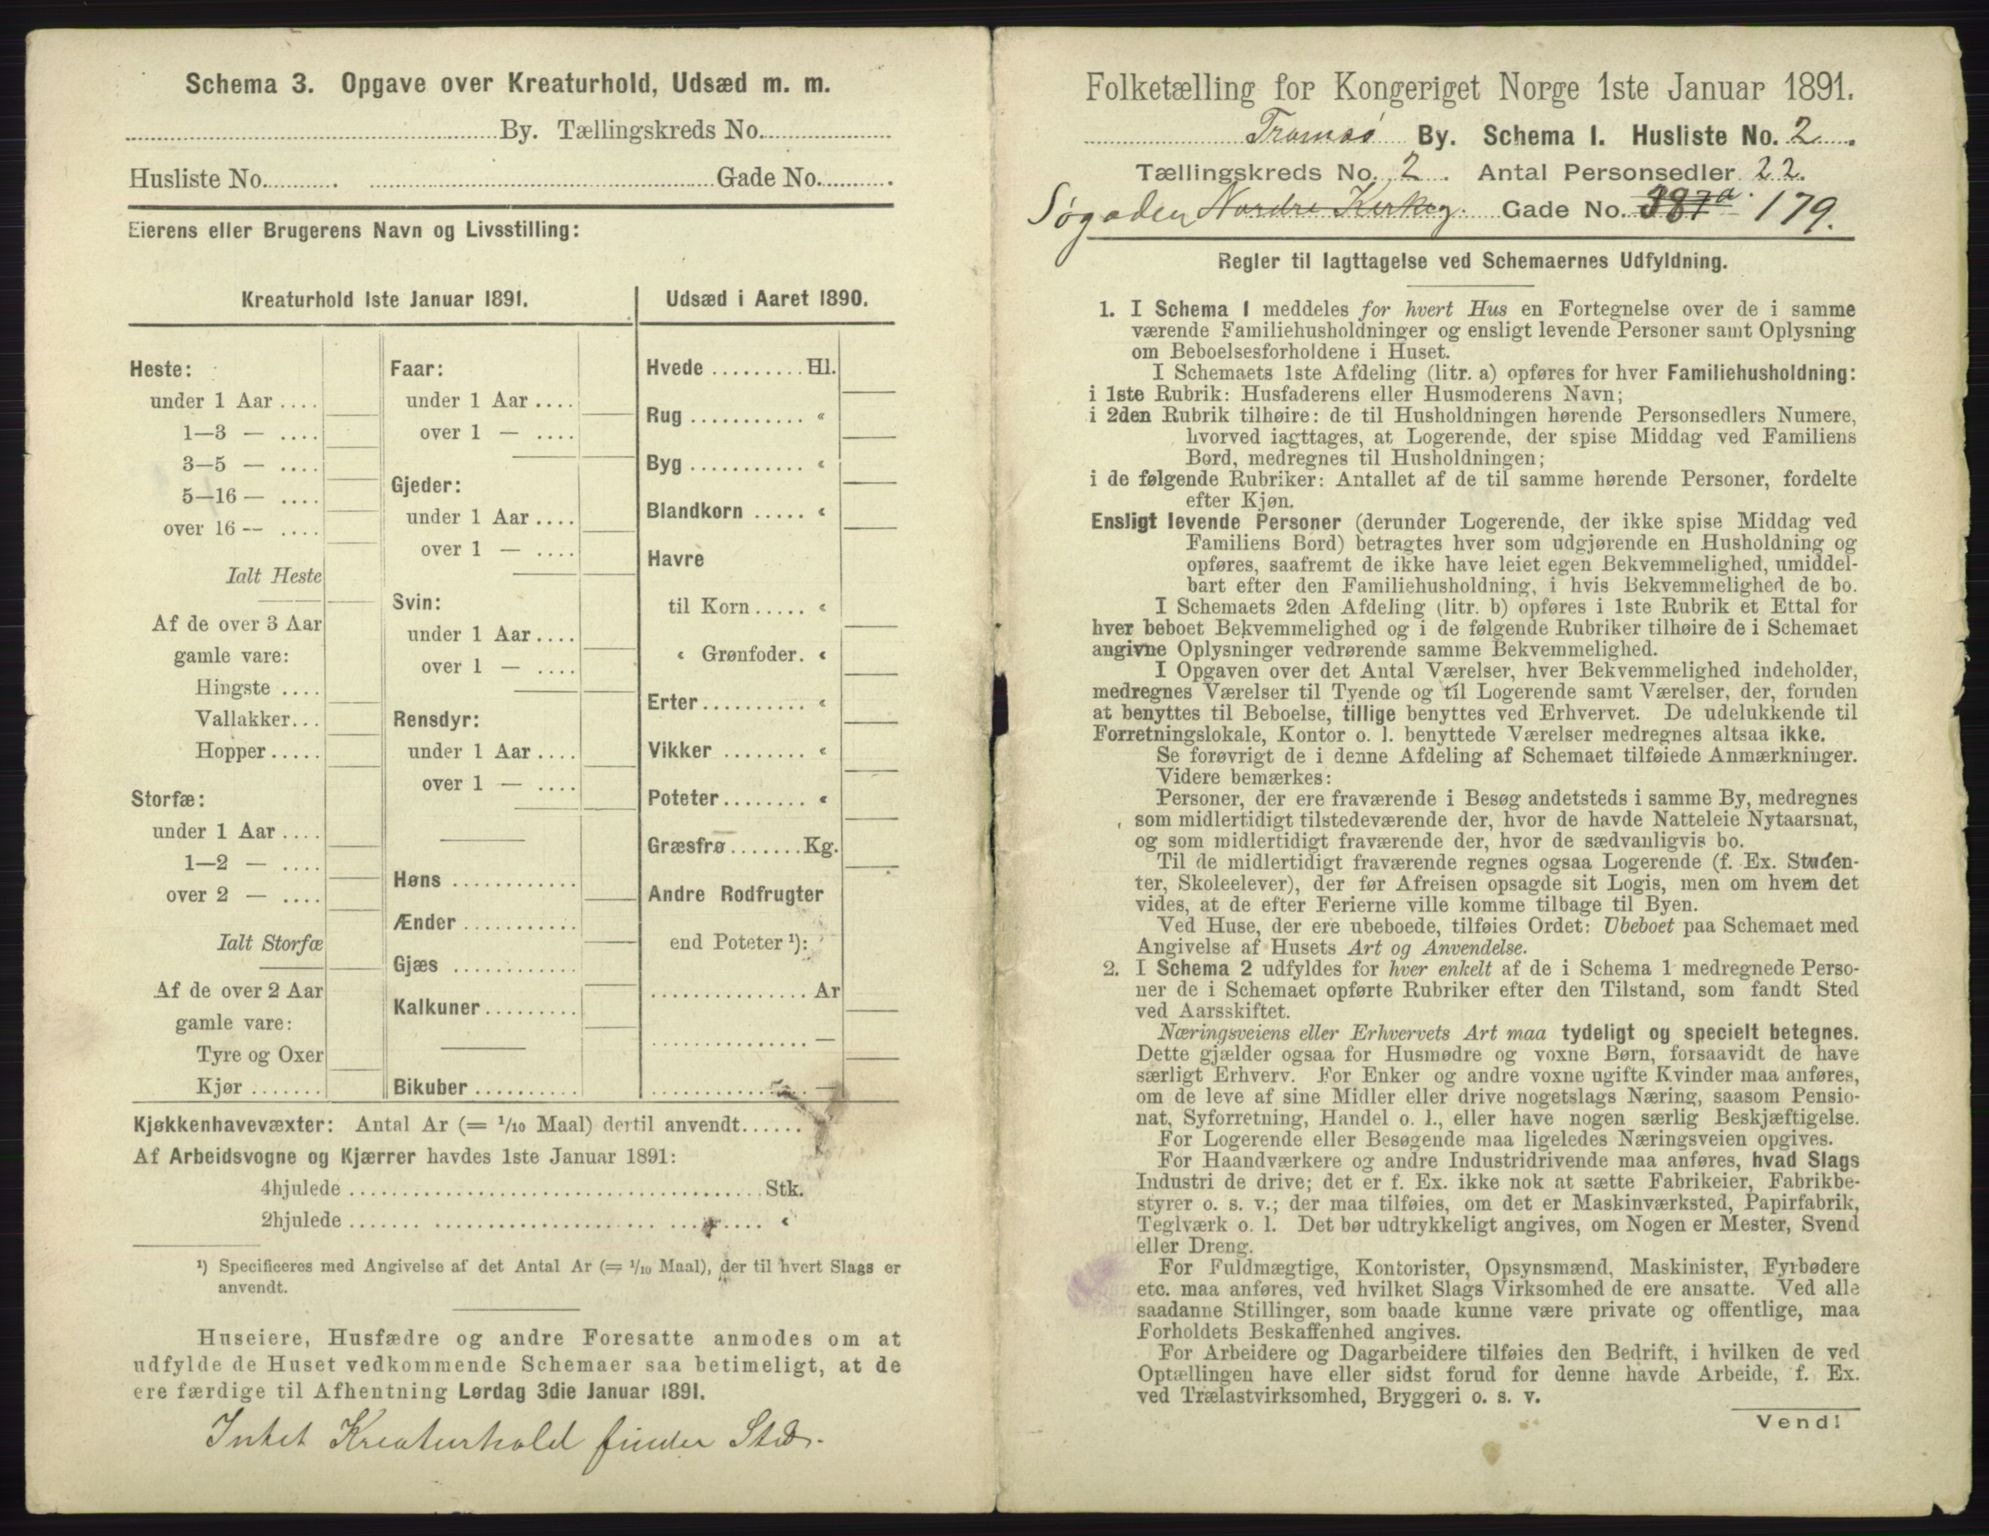 Schema 3. Opgave over Kreaturhold, Udsæd m. m.
By. Tællingskreds No.
Husliste No. Gade No.
Eierens eller Brugerens Navn og Livsstilling:
Kreaturhold 1ste Januar 1891.
Heste:
under 1 Aar ....
1—3 — ....
3—5 — ....
5—16 — ....
over 16 — ....
Ialt Heste
Af de over 3 Aar
gamle vare:
Hingste ....
Vallakker...
Hopper .....
Storfæ:
under 1 Aar ....
1—2 — ....
over 2 — ....
Ialt Storfæ
Af de over 2 Aar
gamle vare:
Tyre og Oxer
Kjør .......
Faar:
under 1 Aar ....
over 1 — ....
Gjeder:
under 1 Aar ....
over 1 — ....
Svin:
under 1 Aar ....
over 1 — ....
Rensdyr:
under 1 Aar ....
over 1 — ....
Høns ............
Ænder ...........
Gjæs ............
Kalkuner .........
Bikuber ..........
Udsæd i Aaret 1890.
Hvede ......... Hl.
Rug ........... «
Byg ........... «
Blandkorn ..... «
Havre
til Korn ..... «
« Grønfoder. «
Erter .......... «
Vikker ......... «
Poteter ........ «
Græsfrø ....... Kg.
Andre Rodfrugter
end Poteter ¹):
............... Ar
............... —
............... —
Kjøkkenhavevæxter: Antal Ar (= 1/10 Maal) dertil anvendt......
Af Arbeidsvogne og Kjærrer havdes 1ste Januar 1891:
4hjulede ........................................ Stk.
2hjulede ........................................ «
¹) Specificeres med Angivelse af det Antal Ar (= 1/10 Maal), der til hvert Slags er
anvendt.
Huseiere, Husfædre og andre Foresatte anmodes om at
udfylde de Huset vedkommende Schemaer saa betimeligt, at de
ere færdige til Afhentning Lørdag 3die Januar 1891.
Intet Kreaturhold finder Sted.
Folketælling for Kongeriget Norge 1ste Januar 1891.
Tromsø By. Schema 1. Husliste No. 2
Tællingskreds No. 2. Antal Personsedler 22.
Søgaden Nordre Kirkeg. Gade No. 387a. 179.
Regler til Iagttagelse ved Schemaernes Udfyldning.
1. I Schema 1 meddeles for hvert Hus en Fortegnelse over de i samme
værende Familiehusholdninger og ensligt levende Personer samt Oplysning
om Beboelsesforholdene i Huset.
I Schemaets 1ste Afdeling (litr. a) opføres for hver Familiehusholdning:
i 1ste Rubrik: Husfaderens eller Husmoderens Navn;
i 2den Rubrik tilhøire: de til Husholdningen hørende Personsedlers Numere,
hvorved iagttages, at Logerende, der spise Middag ved Familiens
Bord, medregnes til Husholdningen;
i de følgende Rubriker: Antallet af de til samme hørende Personer, fordelte
efter Kjøn.
Ensligt levende Personer (derunder Logerende, der ikke spise Middag ved
Familiens Bord) betragtes hver som udgjørende en Husholdning og
opføres, saafremt de ikke have leiet egen Bekvemmelighed, umiddel-
bart efter den Familiehusholdning, i hvis Bekvemmelighed de bo.
I Schemaets 2den Afdeling (litr. b) opføres i 1ste Rubrik et Ettal for
hver beboet Bekvemmelighed og i de følgende Rubriker tilhøire de i Schemaet
angivne Oplysninger vedrørende samme Bekvemmelighed.
I Opgaven over det Antal Værelser, hver Bekvemmelighed indeholder,
medregnes Værelser til Tyende og til Logerende samt Værelser, der, foruden
at benyttes til Beboelse, tillige benyttes ved Erhvervet. De udelukkende til
Forretningslokale, Kontor o. l. benyttede Værelser medregnes altsaa ikke.
Se forøvrigt de i denne Afdeling af Schemaet tilføiede Anmærkninger.
Videre bemærkes:
Personer, der ere fraværende i Besøg andetsteds i samme By, medregnes
som midlertidigt tilstedeværende der, hvor de havde Natteleie Nytaarsnat,
og som midlertidigt fraværende der, hvor de sædvanligvis bo.
Til de midlertidigt fraværende regnes ogsaa Logerende (f. Ex. Studen-
ter, Skoleelever), der før Afreisen opsagde sit Logis, men om hvem det
vides, at de efter Ferierne ville komme tilbage til Byen.
Ved Huse, der ere ubeboede, tilføies Ordet: Ubeboet paa Schemaet med
Angivelse af Husets Art og Anvendelse.
2. I Schema 2 udfyldes for hver enkelt af de i Schema 1 medregnede Perso-
ner de i Schemaet opførte Rubriker efter den Tilstand, som fandt Sted
ved Aarsskiftet.
Næringsveiens eller Erhvervets Art maa tydeligt og specielt betegnes.
Dette gjælder ogsaa for Husmødre og voxne Børn, forsaavidt de have
særligt Erhverv. For Enker og andre voxne ugifte Kvinder maa anføres,
om de leve af sine Midler eller drive nogetslags Næring, saasom Pensio-
nat, Syforretning, Handel o. l., eller have nogen særlig Beskjæftigelse.
For Logerende eller Besøgende maa ligeledes Næringsveien opgives.
For Haandværkere og andre Industridrivende maa anføres, hvad Slags
Industri de drive; det er f. Ex. ikke nok at sætte Fabrikeier, Fabrikbe-
styrer o. s. v.; der maa tilføies, om det er Maskinværksted, Papirfabrik,
Teglværk o. l. Det bør udtrykkeligt angives, om Nogen er Mester, Svend
eller Dreng.
For Fuldmægtige, Kontorister, Opsynsmænd, Maskinister, Fyrbødere
etc. maa anføres, ved hvilket Slags Virksomhed de ere ansatte. Ved alle
saadanne Stillinger, som baade kunne være private og offentlige, maa
Forholdets Beskaffenhed angives.
For Arbeidere og Dagarbeidere tilføies den Bedrift, i hvilken de ved
Optællingen have eller sidst forud for denne havde Arbeide, f. Ex.
ved Trælastvirksomhed, Bryggeri o. s. v.
Vend!